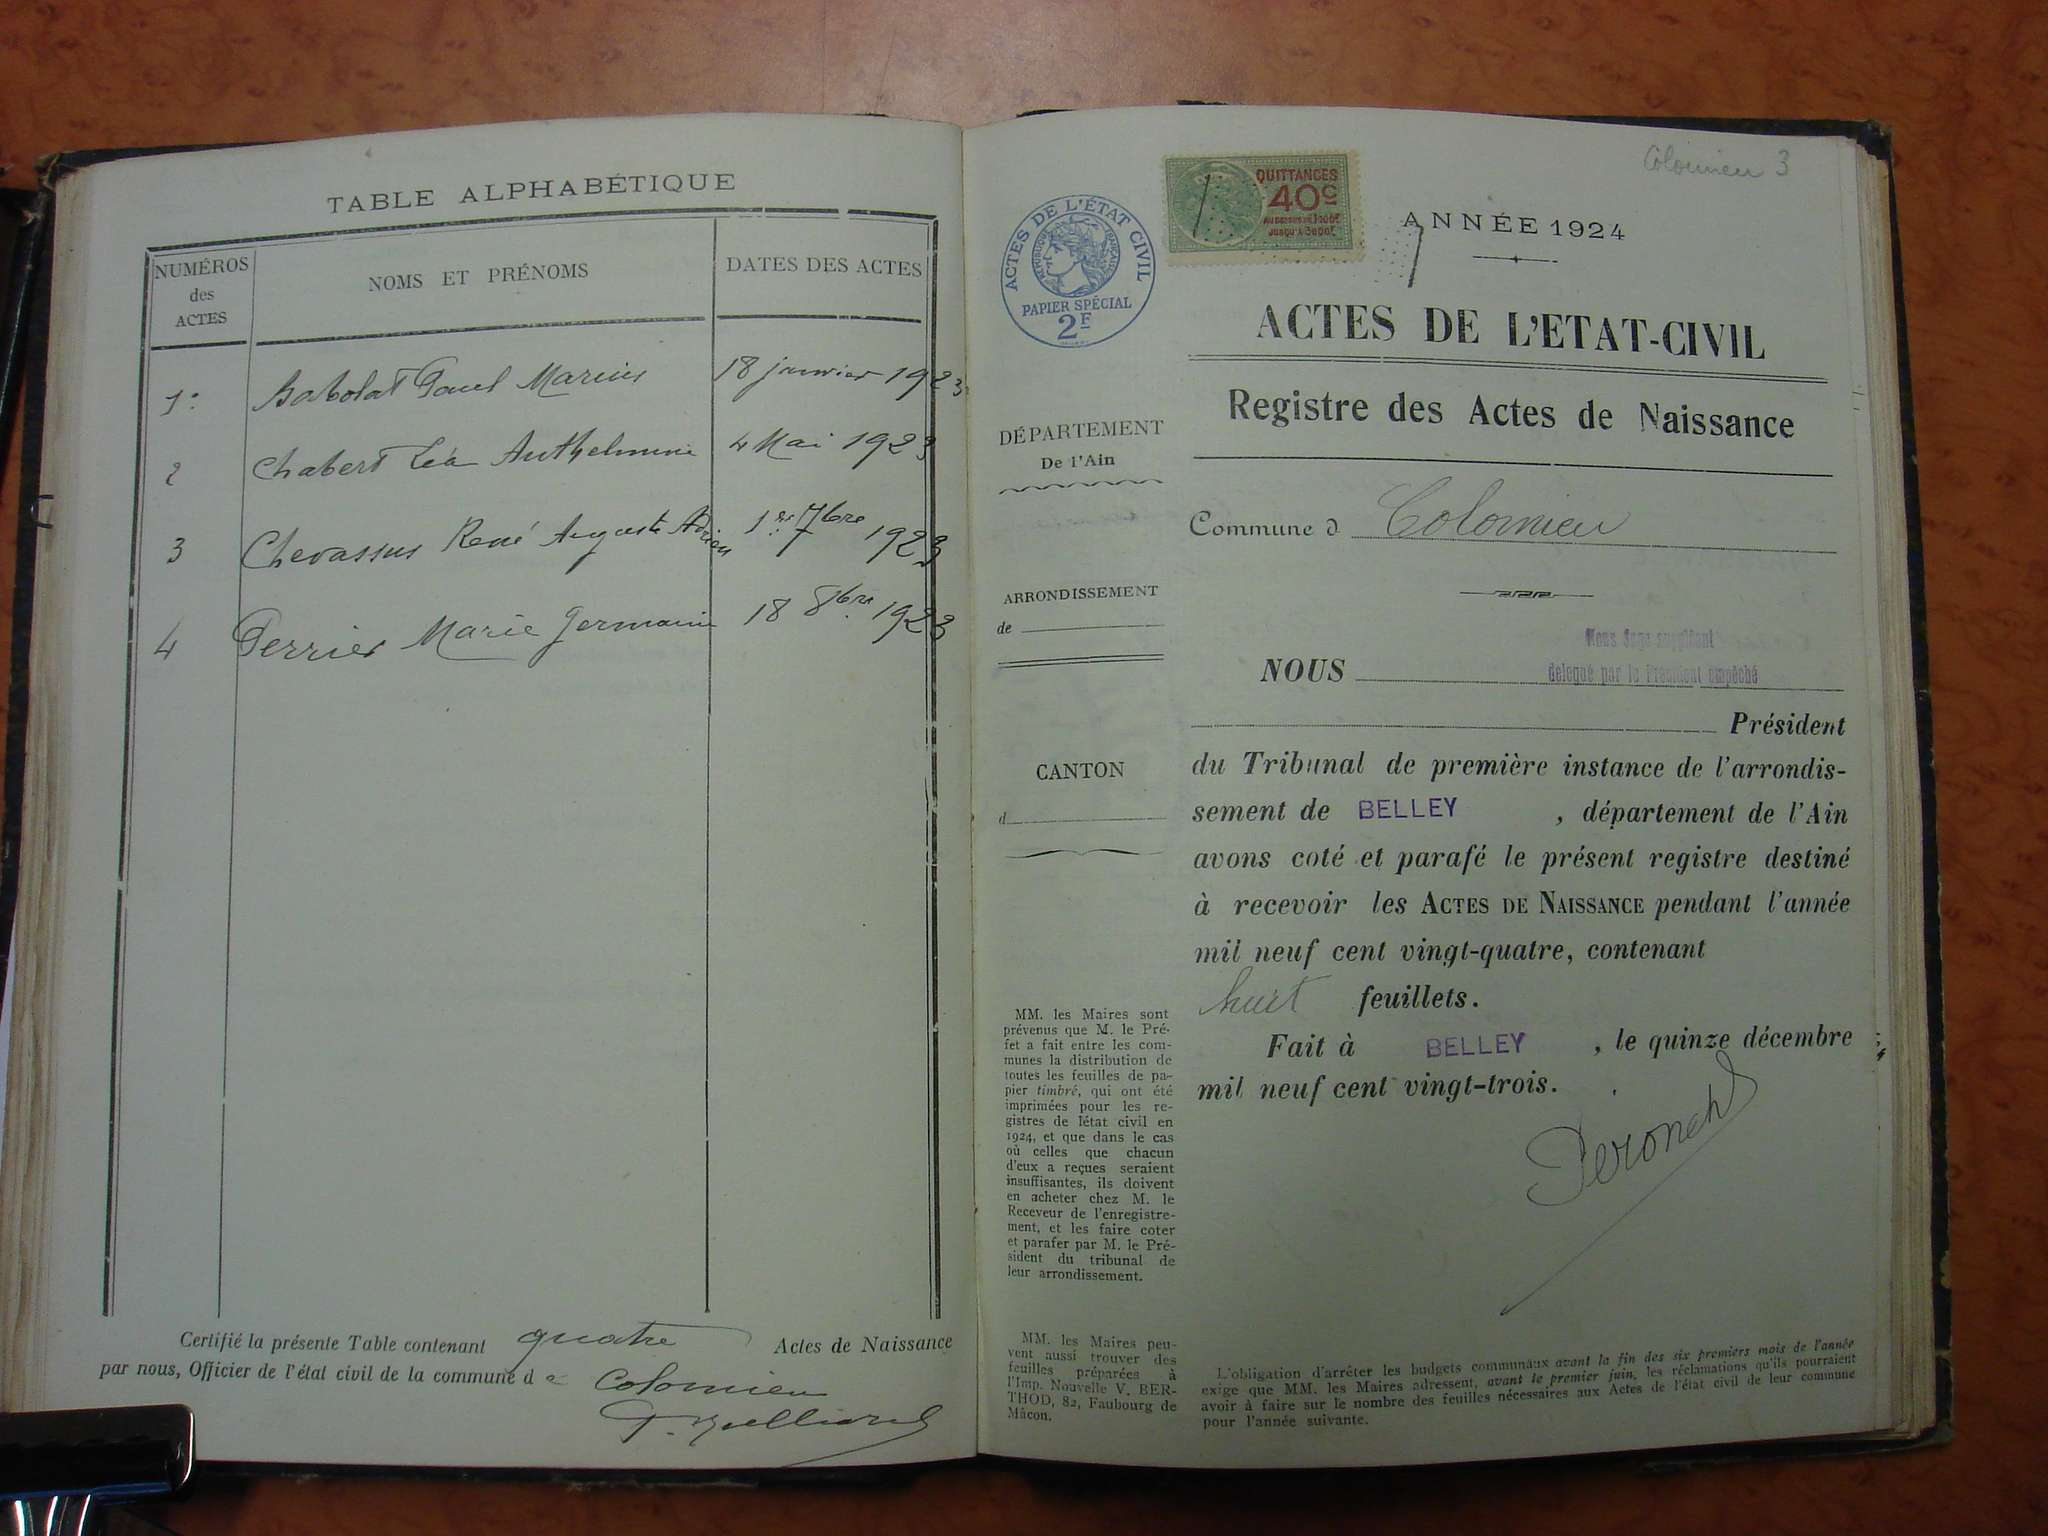 TABLE ALPHABÉTIQUE
NUMÉROS
des
ACTES
NOMS ET PRÉNOMS
DATES DES ACTES
1° Babolat Paul Marius 18 janvier 1923
2 Chabert Léa Anthelmine 4 Mai 1923
3 Chevassus René Auguste Adrien 1er 7bre 1923
4 Perrier Marie Germaine 18 8bre 1923
Certifié la présente Table contenant quatre Actes de Naissance
par nous, Officier de l'état civil de la commune de Colomieu
Colomieu 3
QUITTANCES
40c
ACTES DE L'ÉTAT CIVIL
RÉPUBLIQUE FRANÇAISE
PAPIER SPÉCIAL
2F
ANNÉE 1924
ACTES DE L'ETAT-CIVIL
Registre des Actes de Naissance
DÉPARTEMENT
De l'Ain
Commune d Colomieu
ARRONDISSEMENT
de
Nous Juge suppléant
délégué par le Président empêché
NOUS
Président
CANTON
d
du Tribunal de première instance de l'arrondis-
sement de BELLEY , département de l'Ain
avons coté et parafé le présent registre destiné
à recevoir les ACTES DE NAISSANCE pendant l'année
mil neuf cent vingt-quatre, contenant
huit feuillets.
Fait à BELLEY , le quinze décembre
mil neuf cent vingt-trois.
MM. les Maires sont
prévenus que M. le Pré-
fet a fait entre les com-
munes la distribution de
toutes les feuilles de pa-
pier timbré, qui ont été
imprimées pour les re-
gistres de l'état civil en
1924, et que dans le cas
où celles que chacun
d'eux a reçues seraient
insuffisantes, ils doivent
en acheter chez M. le
Receveur de l'enregistre-
ment, et les faire coter
et parafer par M. le Pré-
sident du tribunal de
leur arrondissement.
MM. les Maires peu-
vent aussi trouver des
feuilles préparées à
l'Imp. Nouvelle V. BER-
THOD, 82, Faubourg de
Mâcon.
L'obligation d'arrêter les budgets communaux avant la fin des six premiers mois de l'année
exige que MM. les Maires adressent, avant le premier juin, les réclamations qu'ils pourraient
avoir à faire sur le nombre des feuilles nécessaires aux Actes de l'état civil de leur commune
pour l'année suivante.